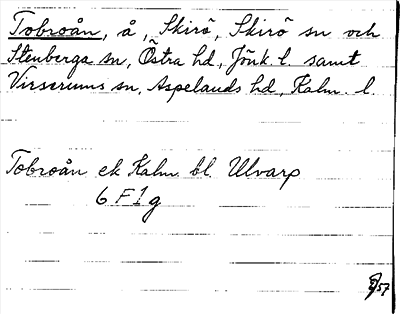 Tobroån, å, Skirö, Skirö sn och
Stenberga sn, Östra hd, Jönk. l. samt
Virserums sn, Aspelands hd, Kalm. l.
Tobroån ek Kalm. bl. Ulvarp
6 F 1 g
57